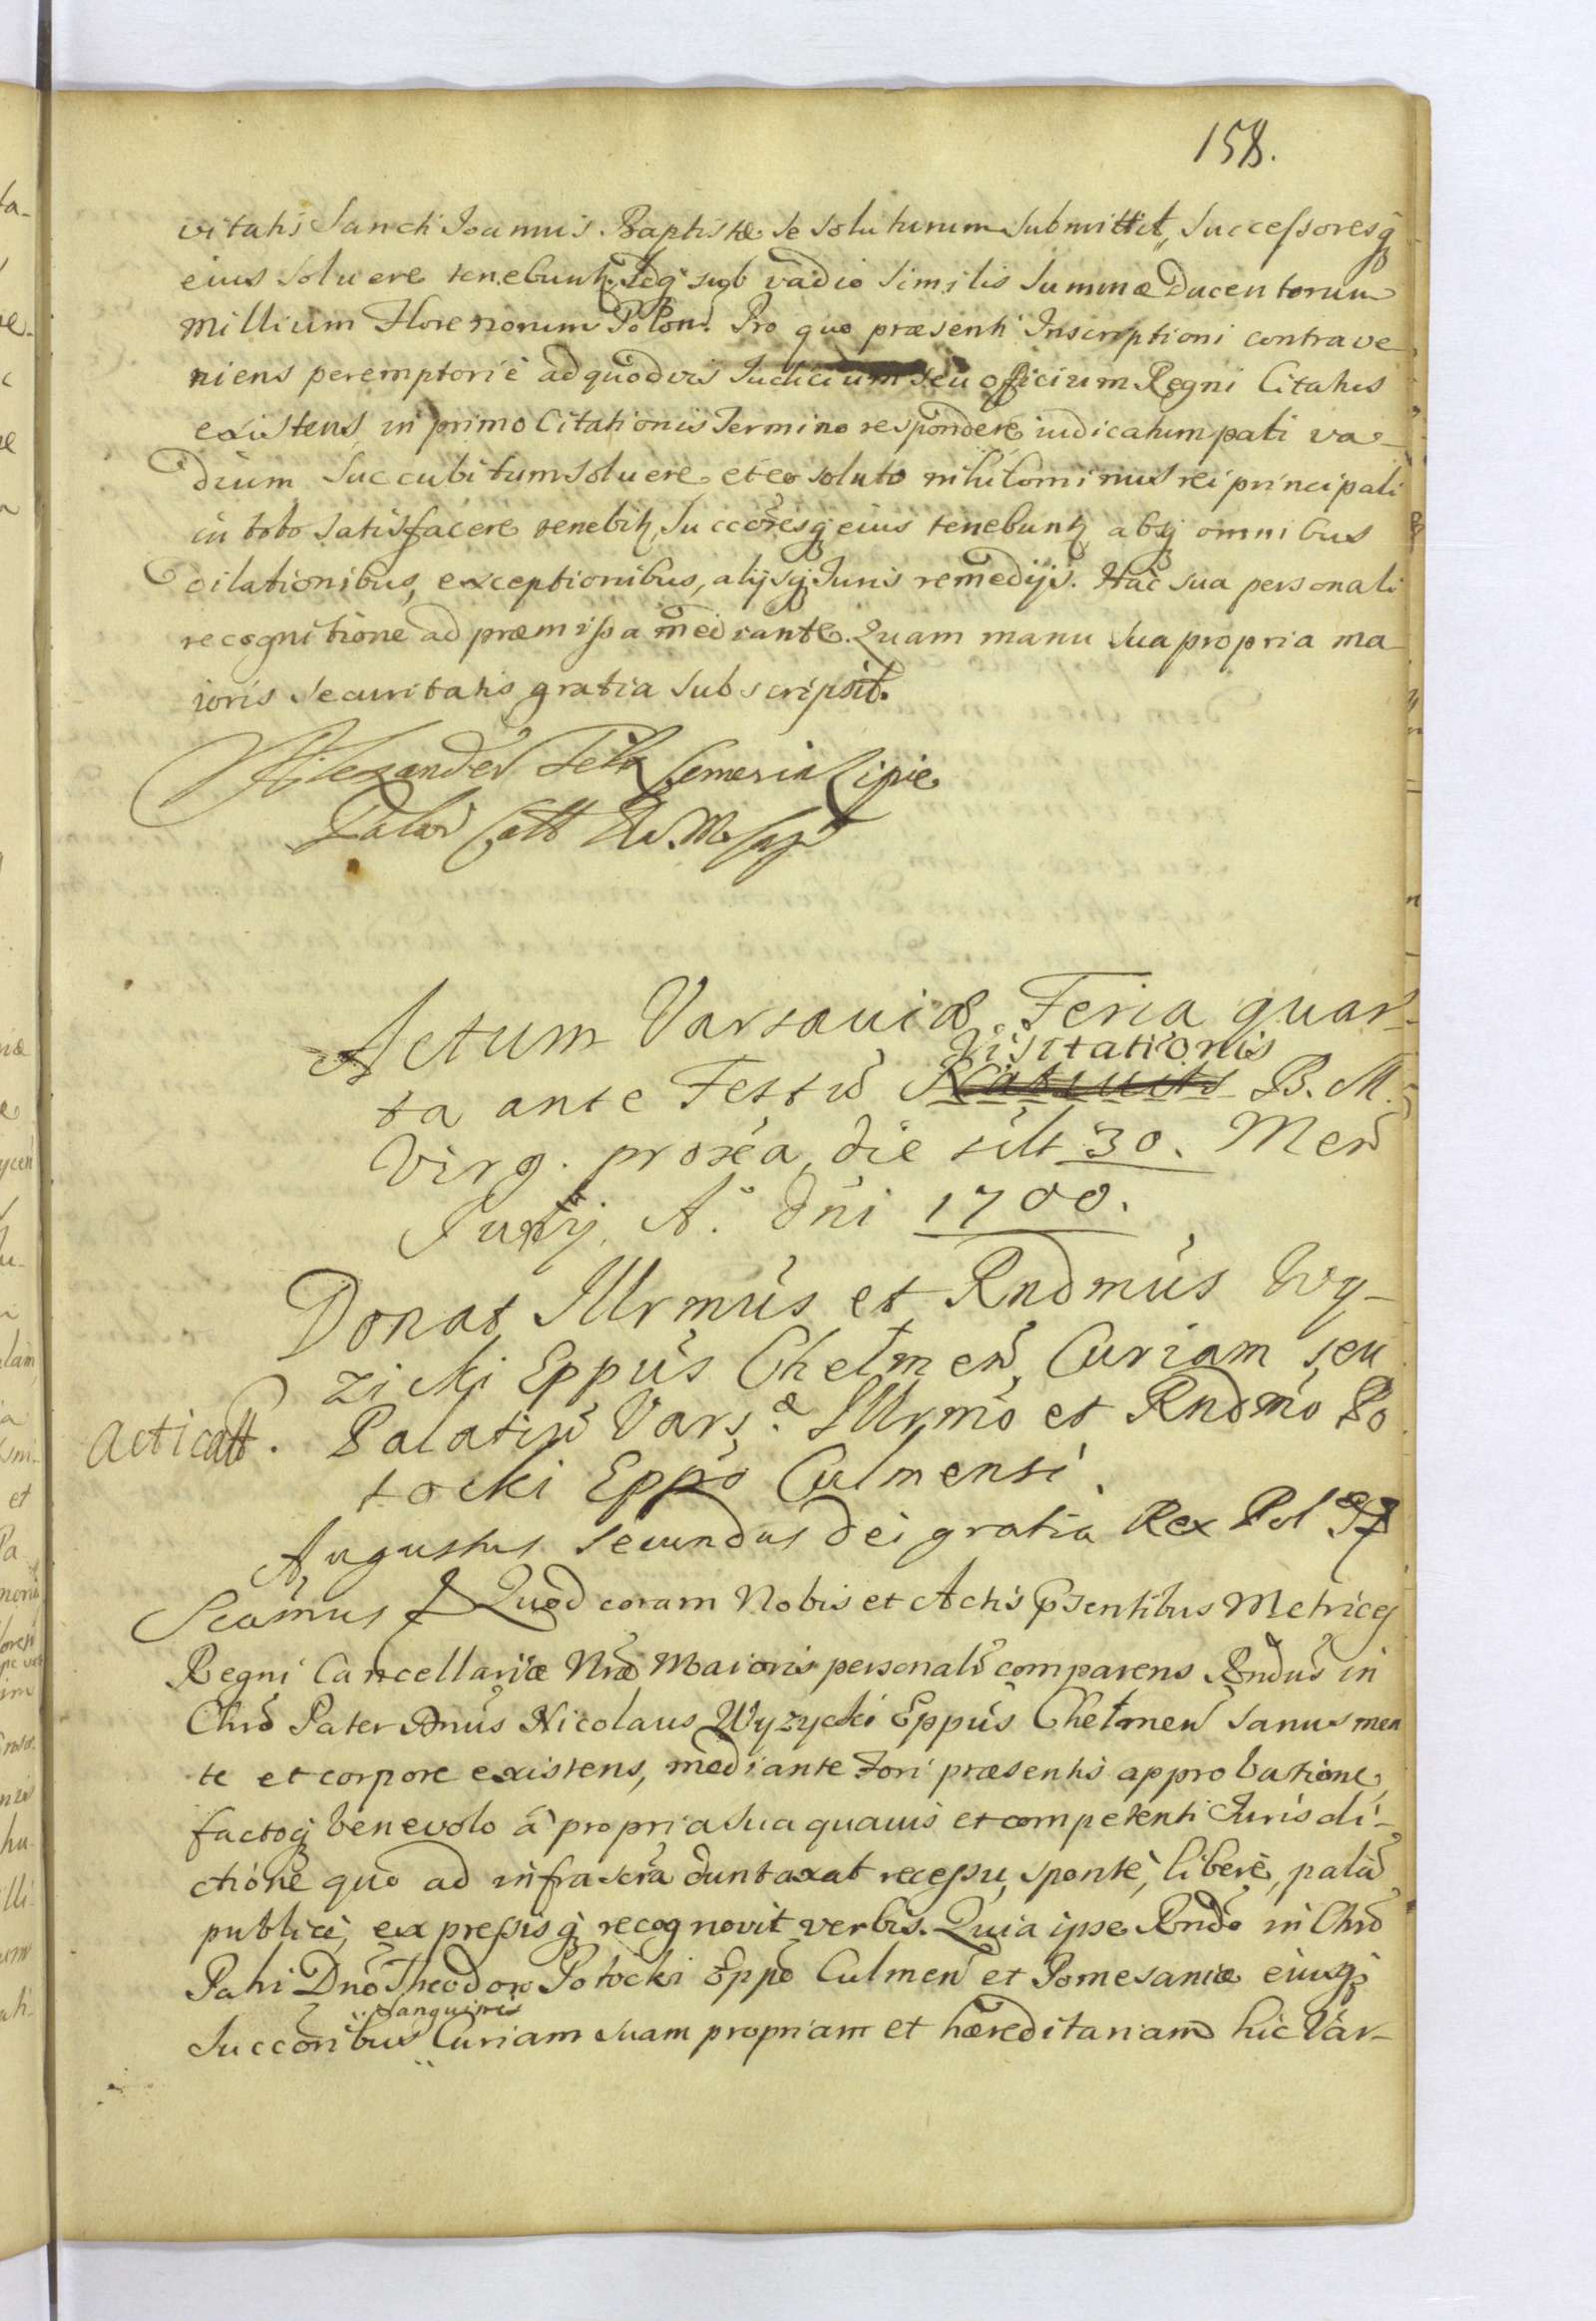 158.
vitatis Sancti Joannis Baptistæ se soluturum submittit, Successoresq
eius soluere tenebuntr. Idq sub vadio similis summæ Ducentorum
millium Florenorum Polon. Pro quo præsenti Inscriptioni contrave
niens peremptorie ad quoduis Iudicium seu officium Regni Citatus
existens, in primo Citationis Termino respondere, iudicatum pati va-
dium succubitum soluere, et eo soluto nihilominus rei principali
in toto satisfacere tenebitr, Succoresq eius tenebuntr, absq omnibus
dilationibus, exceptionibus, alijsq Iuris remedijs. Hac sua personali
recognitione ad præmissa mediante. Quam manu sua propria ma
ioris securitatis gratia subscripsit.
Alexander
Actum Varsauiæ Feria quar-
Visitationis
ta ante Festū Natiuits B. M.
Virg. proxa, die ult 30. Men
Junij. A. Dni 1700.
Donat Illrmus et Rndmus Wy-
zicki Eppus Chełmen, Curiam seu
Acticatt. Palatiū Vars. Illrmo et Rndmo Po
tocki Eppo Culmensi.
Augustus Secundus Dei gratia Rex Pol
Scamus Quod coram Nobis et Actis psentibus Metrices
Regni Cancellariæ Nræ Maioris personalr comparens Rndus in
Chro Pater Dnus Nicolaus Wyzycki Eppus Chełmen sanus men
te et corpore existens, mediante Fori præsentis approbatione,
factoq benevolo à propria sua quauis et competenti Iurisdi-
ctione quo ad infrascra duntaxat recessu, sponte, libere, palā
publice, expressisq recognovit verbis. Quia ipse Rndo in Chro
Patri Dno Theodoro Potocki Eppo Culmen et Pomesaniæ eiusq
sanguineis
Succoribus Curiam suam propriam et hæreditariam hic Var-